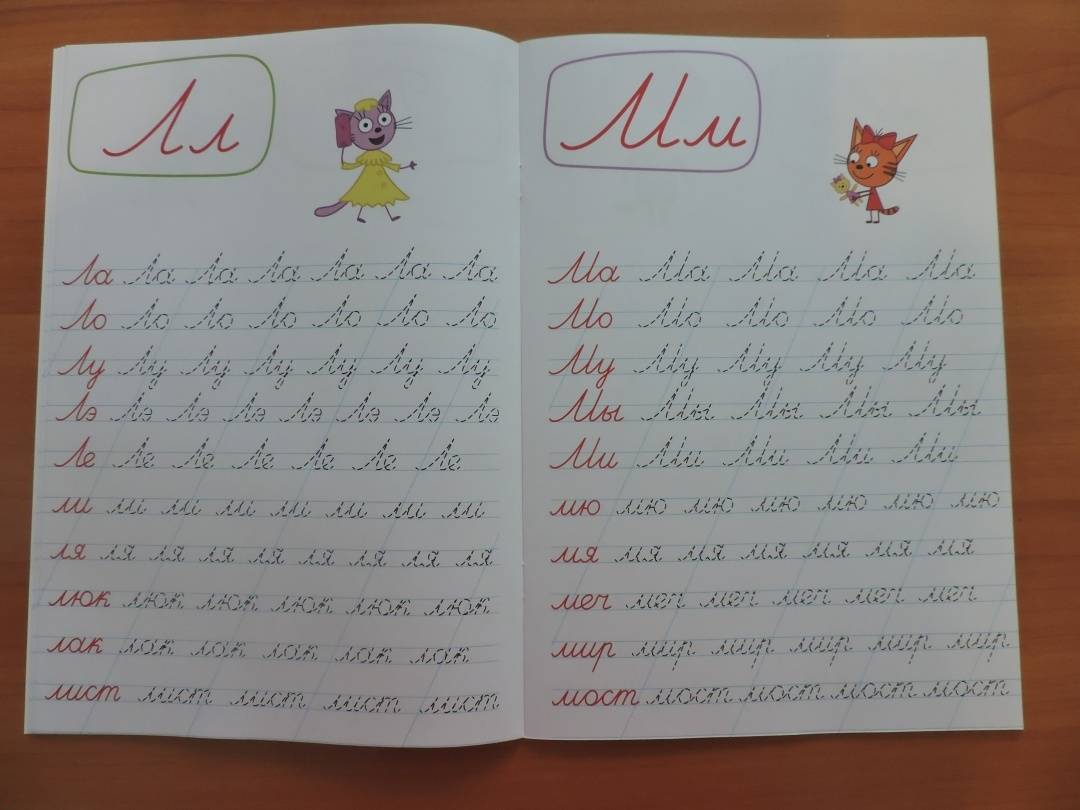 Лл
Ла Ла Ла Ла Ла Ла Ла
Ло Ло Ло Ло Ло Ло Ло
Лу Лу Лу Лу Лу Лу Лу
Лэ Лэ Лэ Лэ Лэ Лэ Лэ Лэ
Ле Ле Ле Ле Ле Ле Ле
ли ли ли ли ли ли ли ли
ля ля ля ля ля ля ля ля ля
люк люк люк люк люк люк
лак лак лак лак лак лак
лист лист лист лист лист
Мм
Ма Ма Ма Ма Ма
Мо Мо Мо Мо Мо
Му Му Му Му Му
Мы Мы Мы Мы Мы
Ми Ми Ми Ми Ми
мю мю мю мю мю мю мю
мя мя мя мя мя мя мя
меч меч меч меч меч меч
мир мир мир мир мир мир
мост мост мост мост мост